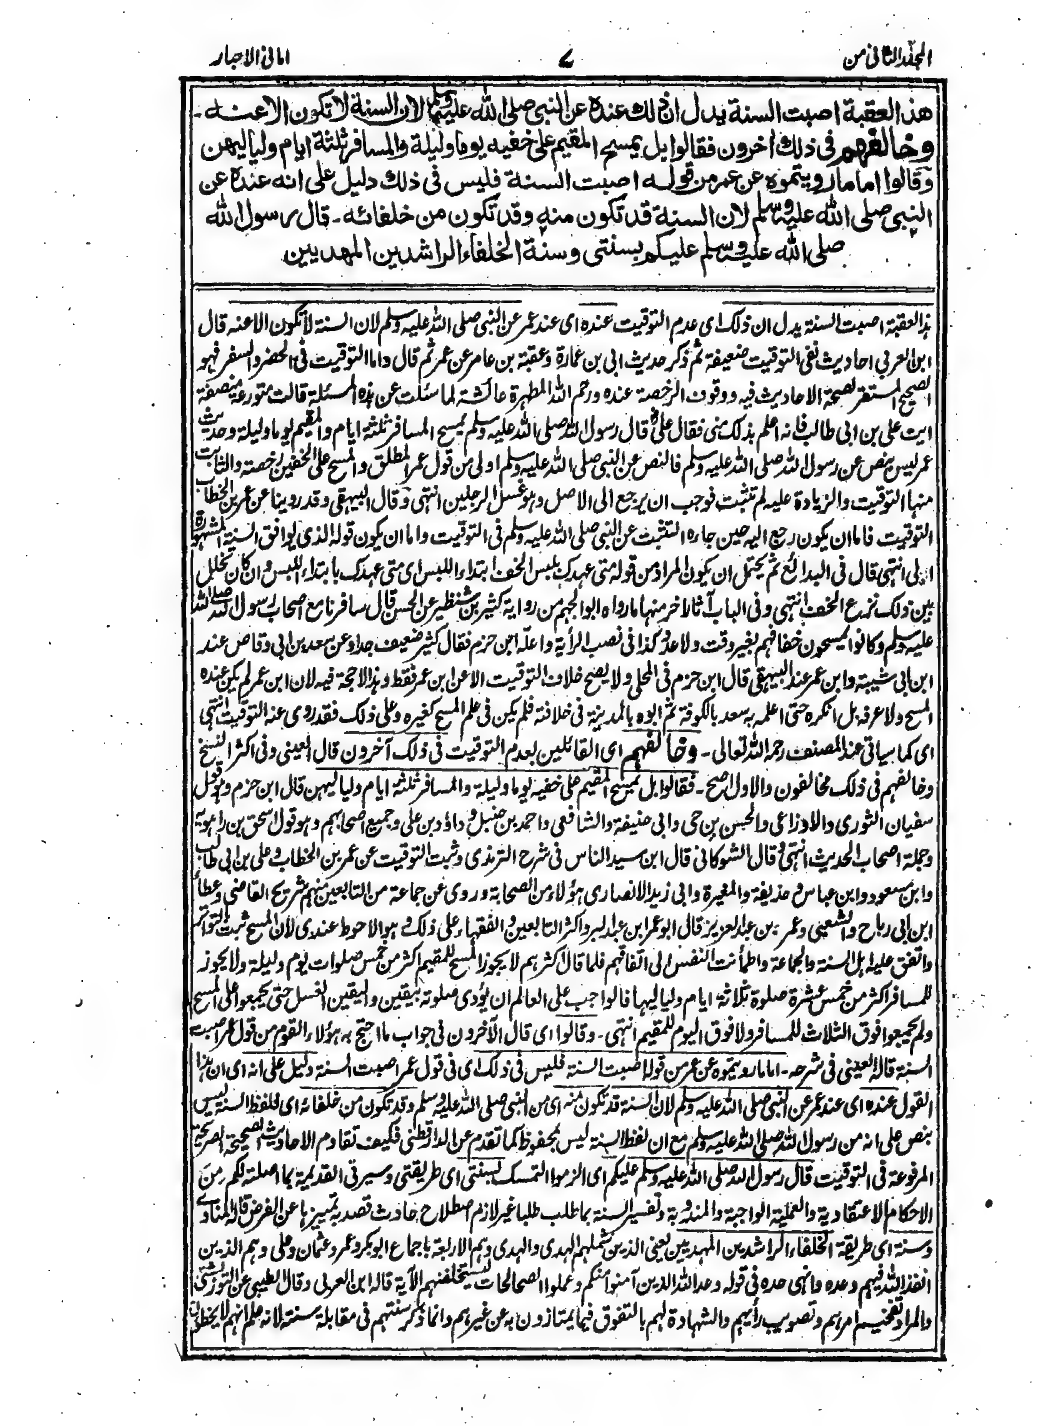 المجلد الثانی من
۷
امانی الاحبار
هذا لعقبة اصبت السنة يدل ان ذلك عنده عن النبی صلی الله علیه وسلم لان السنة لا تكون الا عنه -
وخالفهم فی ذلك اخرون فقالوا بل يمسح المقيم علی خفیه يوما وليلة والمسافر ثلثة ايام ولياليهن
وقالوا اما ما رويتموه عن عمر من قوله اصبت السنة فليس فی ذلك دليل علی انه عنده عن
النبی صلی الله علیه وسلم لان السنة قد تكون منه وقد تكون من خلفائه - قال رسول الله
صلی الله علیه وسلم علیکم بسنتی وسنة الخلفاء الراشدین المهدیین
هذا لعقبة اصبت السنة يدل ان ذلك ای عدم التوقيت عنده ای عند عمر عن النبی صلی الله علیه وسلم لان السنة لا تكون الا عنه قال
ابن العربی احادیث نفی التوقيت ضعيفة ثم ذكر حديث ابی بن عمارة وعقبة بن عامر عن عمر ثم قال واما التوقيت فی الحضر والسفر فهو
الصحیح المستقر لصحة الاحادیث فیه ووقوف الرخصة عنده ورحم الله المطهرة عائشة لما سئلت عن هذه المسئلة قالت متورعة منصفة
ایت علی بن ابی طالب فانه اعلم بذلك منی فقال علی قال رسول الله صلی الله علیه وسلم یمسح المسافر ثلثة ایام والمقیم یوما ولیلة وحدیث
عمر لیس بنص عن رسول الله صلی الله علیه وسلم فالنص عن النبی صلی الله علیه وسلم اولی من قول عمر المطلق والمسح علی الخفین رخصة والثابت
منها التوقیت والزیادة علیه لم تثبت فوجب ان یرجع الی الاصل وهو غسل الرجلین انتهی وقال البیهقی وقد روینا عن عمر بن الخطاب
التوقیت فاما ان یکون رجع الیه حین جاءه الثبت عن النبی صلی الله علیه وسلم فی التوقیت واما ان یکون قوله الذی یوافق السنة المشهورة
اولی انتهی قال فی البدائع ثم یحتمل ان یکون المراد من قوله متی عهدك بلبس الخف ابتداء اللبس ای متی عهدك بابتداء اللبس وان کان تخلل
بین ذلك نزع الخف انتهی وفی الباب آثار اخر منها ما رواه ابو الجهم من روایة کثیر بن شنظیر عن الحسن قال سافرنا مع اصحاب رسول الله صلی الله
علیه وسلم وکانوا یمسحون خفافهم بغیر وقت ولا عدد کذا فی نصب الرأیة واعله ابن حزم فقال کثیر ضعیف جدا وعن سعد بن ابی وقاص عند
ابن ابی شیبة وابن عمر عند البیهقی قال ابن حزم فی المحلی ولا یصح خلاف التوقیت الا عن ابن عمر فقط وهذا لا حجة فیه لان ابن عمر لم یکن عنده
المسح ولا عرفه بل انکره حتی اعلمه به سعد بالکوفة ثم ابوه بالمدینة فی خلافته فلم یکن فی علم المسح کغیره وعلی ذلك فقد روی عنه التوقیت انتهی
ای کما سیاتی عند المصنف رحمه الله تعالی - وخالفهم ای القائلین بعدم التوقیت فی ذلك آخرون قال العینی وفی اکثر النسخ
وخالفهم فی ذلك مخالفون والاول اصح - فقالوا بل یمسح المقیم علی خفیه یوما ولیلة والمسافر ثلثة ایام ولیالیهن قال ابن حزم وهو قول
سفیان الثوری والاوزاعی والحسن بن حی وابی حنیفة والشافعی واحمد بن حنبل وداؤد بن علی وجمیع اصحابهم وهو قول اسحق بن راهویه
وجملة اصحاب الحدیث انتهی وقال الشوکانی قال ابن سید الناس فی شرح الترمذی وثبت التوقیت عن عمر بن الخطاب وعلی بن ابی طالب
وابن مسعود وابن عباس وحذیفة والمغیرة وابی زید الانصاری هؤلاء من الصحابة وروی عن جماعة من التابعین منهم شریح القاضی وعطاء
ابن ابی رباح والشعبی وعمر بن عبد العزیز قال ابو عمر ابن عبد البر واکثر التابعین والفقهاء علی ذلك وهو الاحوط عندی لان المسح ثبت بالتواتر
واتفق علیه اهل السنة والجماعة واطمأنت النفس الی اتفاقهم فلما قال اکثرهم لا یجوز المسح للمقیم اکثر من خمس صلوات یوم ولیلة ولا یجوز
للمسافر اکثر من خمس عشرة صلوة ثلاثة ایام ولیالیها فالواجب علی العالم ان یؤدی صلوته بیقین والیقین الغسل حتی یجمعوا علی المسح
ولم یجمعوا فوق الثلاث للمسافر ولا فوق الیوم للمقیم انتهی - وقالوا ای قال الآخرون فی جواب ما احتج به هؤلاء القوم من قول عمر اصبت
السنة قاله العینی فی شرحه - اما ما رویتموه عن عمر من قوله اصبت السنة فلیس فی ذلك ای فی قول عمر اصبت السنة دلیل علی انه ای ان هذا
القول عنده ای عند عمر عن النبی صلی الله علیه وسلم لان السنة قد تکون منه ای من النبی صلی الله علیه وسلم وقد تکون من خلفائه ای فلفظ السنة لیس
بنص علی انه من رسول الله صلی الله علیه وسلم مع ان لفظ السنة لیس بمحفوظ کما تقدم عن الدارقطنی فکیف تقاوم الاحادیث الصحیحة الصریحة
المرفوعة فی التوقیت قال رسول الله صلی الله علیه وسلم علیکم ای الزموا التمسک بسنتی ای طریقتی وسیرتی القدیمة بما اصلته لکم من
الاحکام الاعتقادیة والعملیة الواجبة والمندوبة وتفسیر السنة بما طلب طلبا غیر لازم اصطلاح حادث قصد به تمییزها عن الفرض قاله المناوی
وسنة ای طریقة الخلفاء الراشدین المهدیین یعنی الذین شملهم الهدی والهدی وهم الاربعة باجماع ابوبکر وعمر وعثمان وعلی وهم الذین
انفذ الله فیهم وعده وانهی حده فی قوله وعد الله الذین آمنوا منکم وعملوا الصالحات لیستخلفنهم الآیة قاله ابن العربی وقال الطیبی عن التوربشتی
والمراد تفخیم امرهم وتصویب رأیهم والشهادة لهم بالتفوق فیما یمتازون به عن غیرهم وانما ذکر سنتهم فی مقابلة سنته لانه علم انهم لا یخطئون